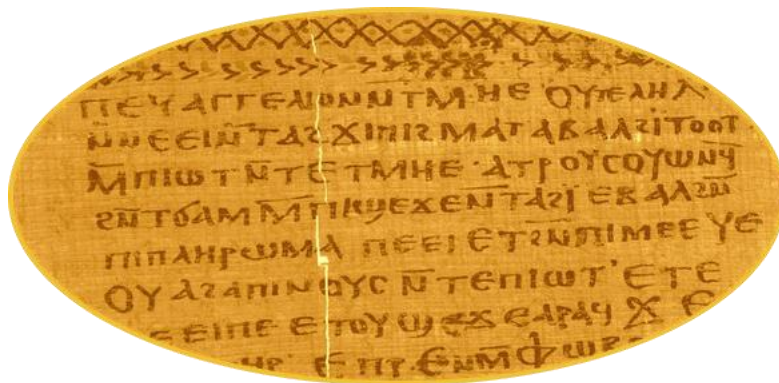 ⲡⲉⲩⲁⲅⲅⲉⲗⲓⲟⲛ ⲛ̄ⲧⲙⲏⲉ ⲟⲩⲧⲉⲗⲏⲗ
ⲛ̄ⲛⲉⲉⲓ ⲛ̄ⲧⲁϩϫⲓ ⲡⲓϩⲙⲁⲧ ⲁⲃⲁⲗ ϩⲓⲧⲟⲟⲧ
ⲙ̄ⲡⲓⲱⲧ ⲛ̄ⲧⲉ ⲧⲙⲏⲉ · ⲁⲧⲣⲟⲩⲥⲟⲩⲱⲛϥ̄
ϩⲛ̄ ⲧϭⲁⲙ ⲙ̄ⲡⲓϣⲉϫⲉ ⲛ̄ⲧⲁϩⲓ̈ ⲉⲃⲁⲗ ϩⲛ̄
ⲡⲓⲡⲗⲏⲣⲱⲙⲁ ⲡⲉⲉⲓ ⲉⲧϩⲛ̄ ⲡⲓⲙⲉⲉⲩⲉ
ⲟⲩⲁϩⲁ ⲡⲓⲛⲟⲩⲥ ⲛ̄ⲧⲉ ⲡⲓⲱⲧ ' ⲉⲧⲉ
ⲉⲉⲓ ⲡⲉ ⲉⲧⲟⲩϣⲉϫⲉ ⲁⲣⲁϥ ϫⲉ
ⲉⲡⲣⲉⲛ ⲙ̄ⲫⲱⲃ